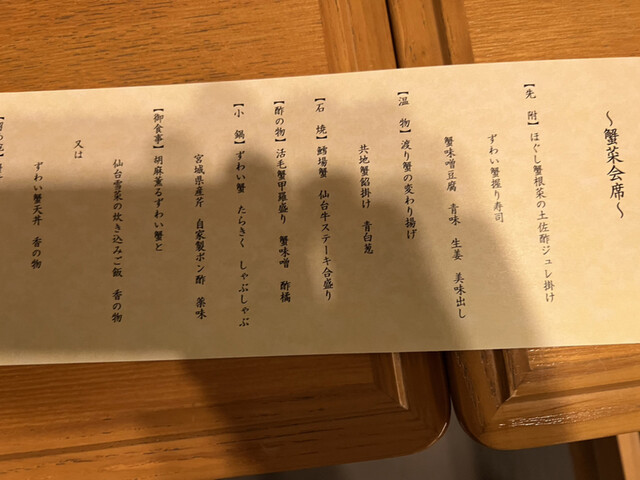 ～蟹菜会席～
【先 附】ほぐし蟹根菜の土佐酢ジュレ掛け
ずわい蟹握り寿司
蟹味噌豆腐 青味 生姜 美味出し
【温 物】渡り蟹の変わり揚げ
共地蟹餡掛け 青白葱
【石 焼】鱈場蟹 仙台牛ステーキ合盛り
【酢の物】活毛蟹甲羅盛り 蟹味噌 酢橘
【小 鍋】ずわい蟹 たらきく しゃぶしゃぶ
宮城県産芹 自家製ポン酢 薬味
【御食事】胡麻薫るずわい蟹と
仙台雪菜の炊き込みご飯 香の物
又は
ずわい蟹天丼 香の物